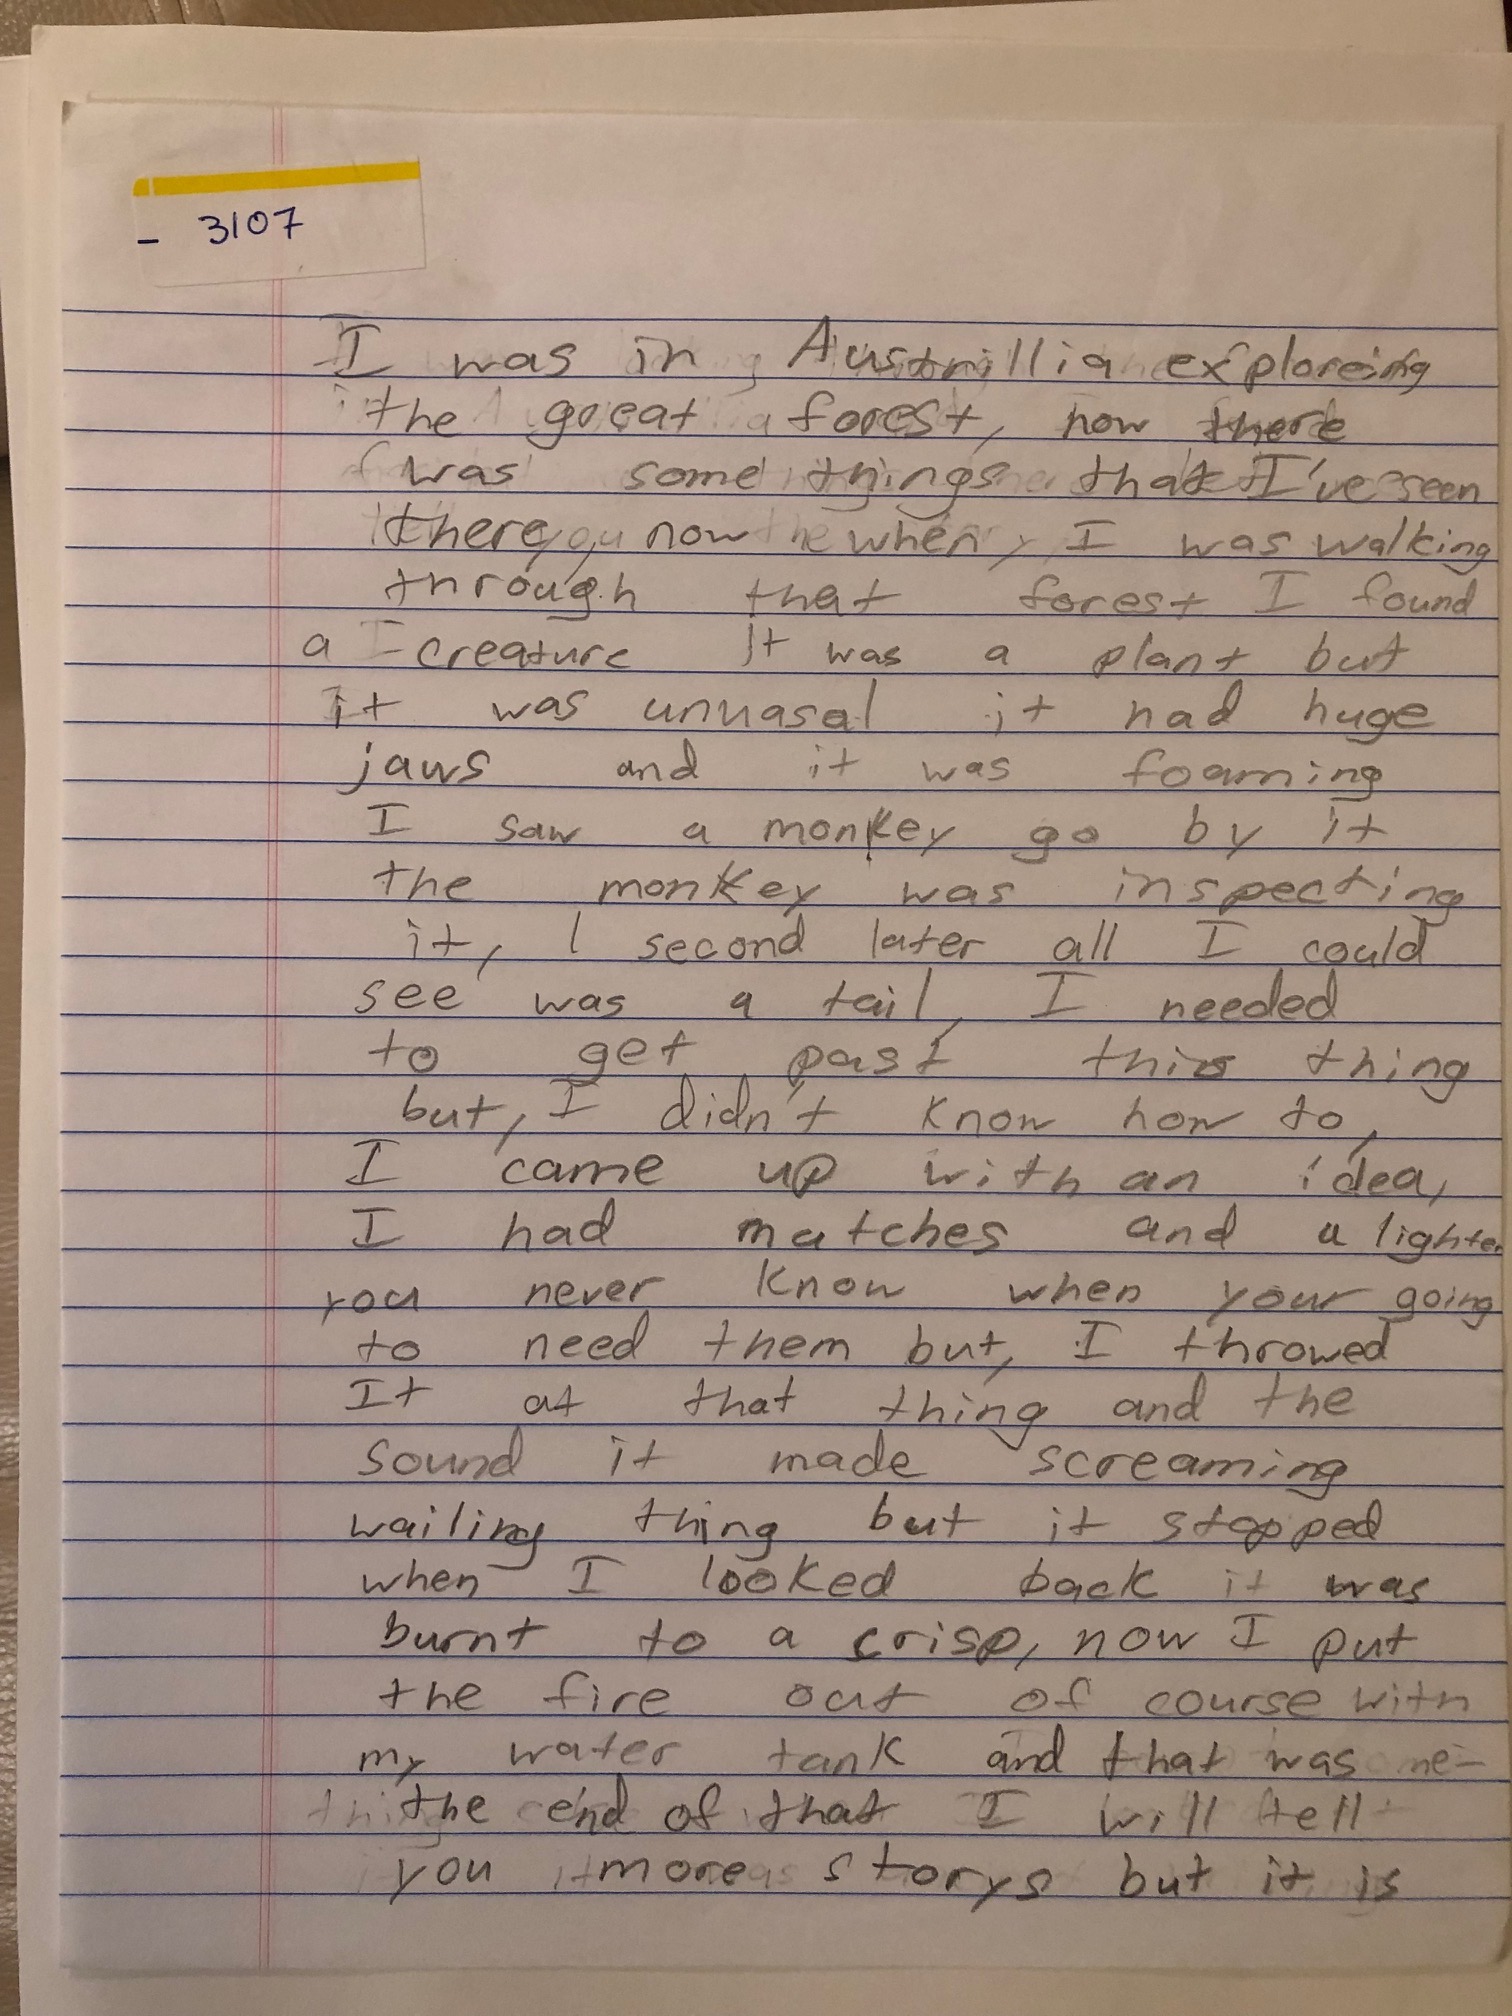 - 3107
I was in Austrillia exploreing
the great forest, now there
was some things that I've seen
there now when, I was walking
through that forest I found
a creature It was a plant but
it was unuasal it had huge
jaws and it was foaming
I saw a monkey go by it
the monkey was inspecting
it, 1 second later all I could
see was a tail, I needed
to get past this thing
but, I didn't know how to,
I came up with an idea,
I had matches and a lighter
you never know when your going
to need them but, I throwed
It at that thing and the
sound it made screaming
wailing thing but it stopped
when I looked back it was
burnt to a crisp, now I put
the fire out of course with
my water tank and that was
the end of that I will tell
you more storys but it is